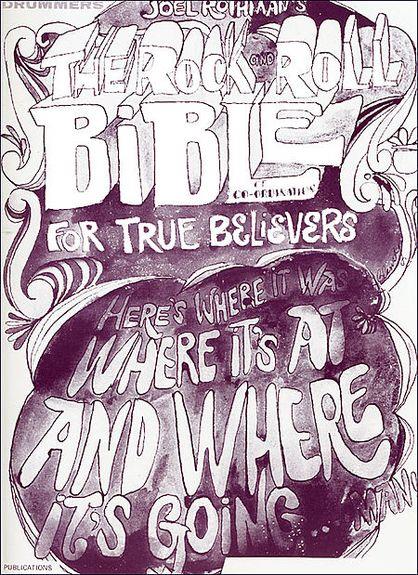 DRUMMERS
JOEL ROTHMAN'S
THE ROCK AND ROLL
BIBLE
OF
CO-ORDINATION
FOR TRUE BELIEVERS
HERE'S WHERE IT WAS
WHERE IT'S AT
AND WHERE
IT'S GOING
PUBLICATIONS